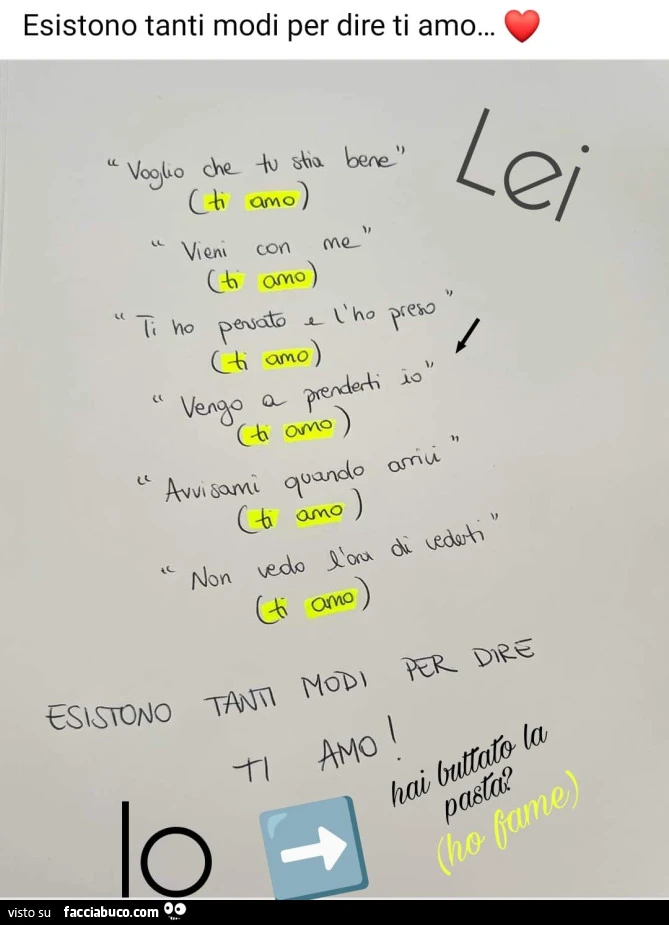 Esistono tanti modi per dire ti amo... ❤️
Lei
“Voglio che tu stia bene”
(ti amo)
“Vieni con me”
(ti amo)
“Ti ho pensato e l'ho preso”
(ti amo)
“Vengo a prenderti io”
(ti amo)
“Avvisami quando arrivi”
(ti amo)
“Non vedo l'ora di vederti”
(ti amo)
ESISTONO TANTI MODI PER DIRE
TI AMO!
hai buttato la
pasta?
(ho fame)
Io ➡️
visto su facciabuco.com